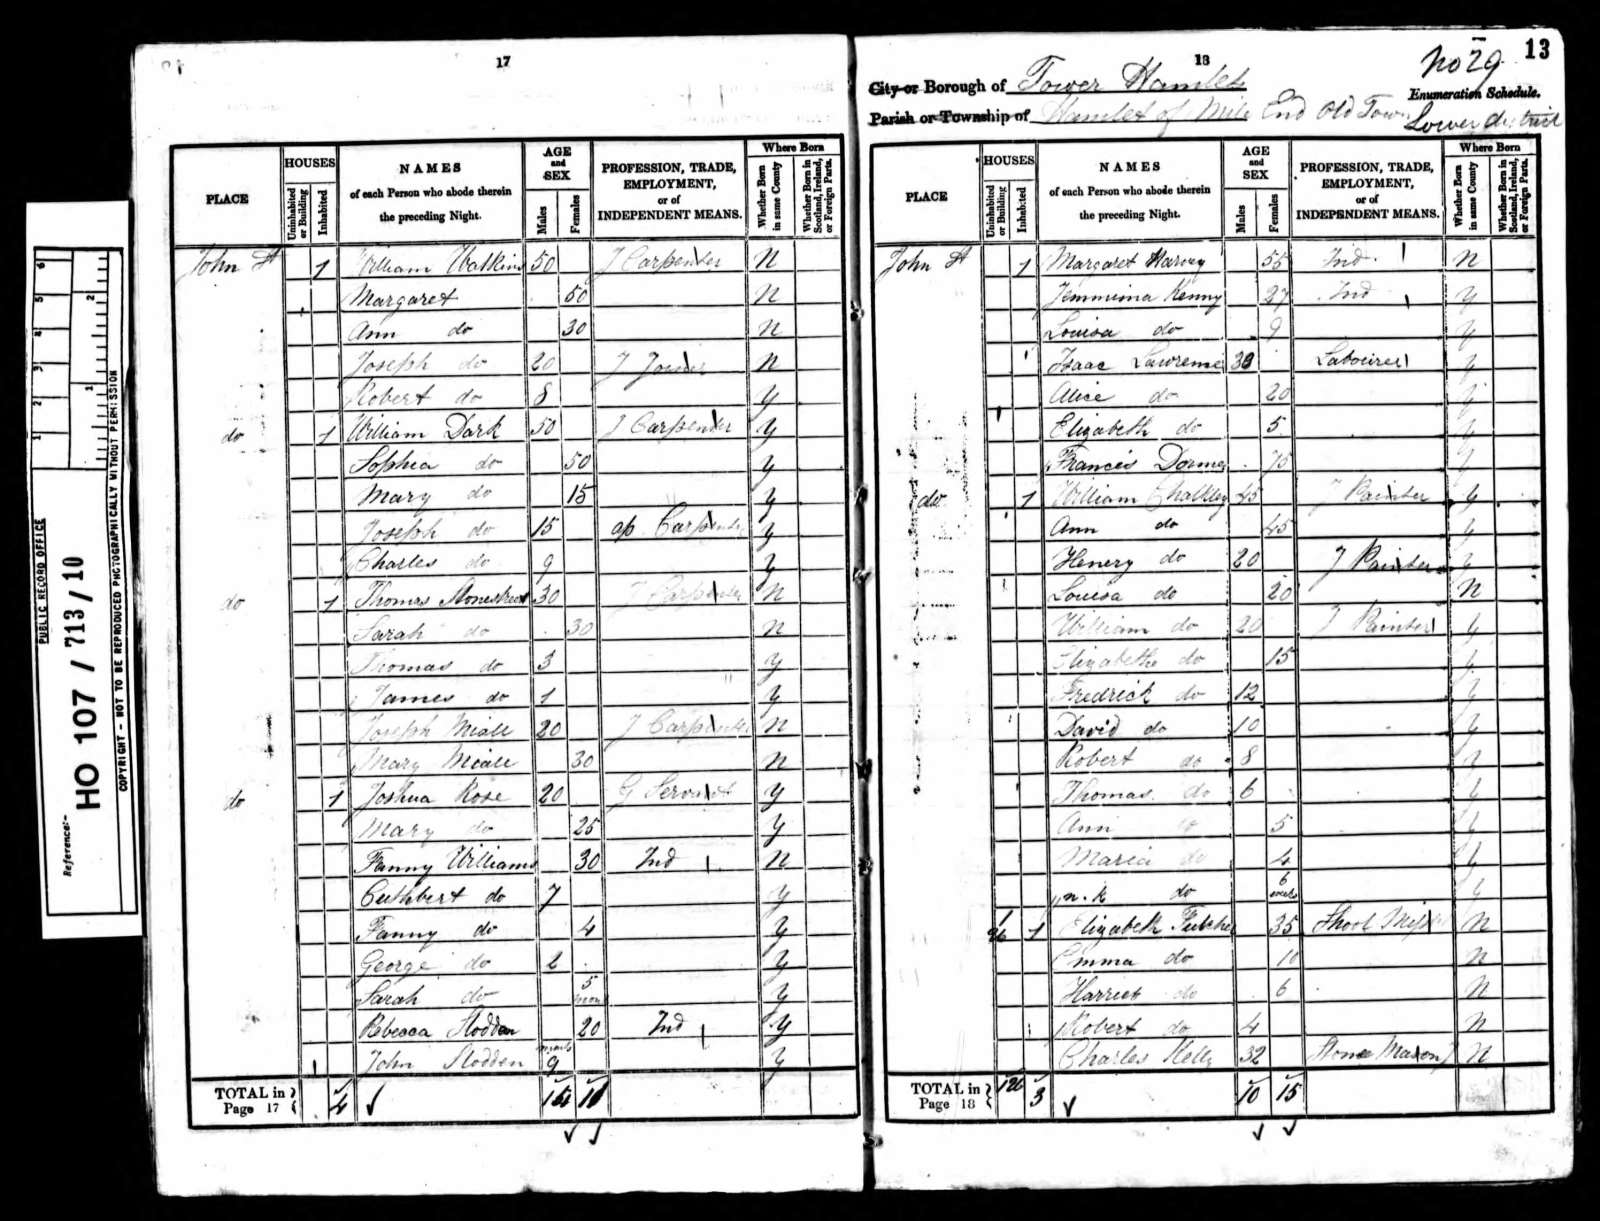 17
PLACE
HOUSES
Uninhabited or Building
Inhabited
NAMES
of each Person who abode therein
the preceding Night.
AGE
and
SEX
Males
Females
PROFESSION, TRADE,
EMPLOYMENT,
or of
INDEPENDENT MEANS.
Where Born
Whether Born in same County
Whether Born in Scotland, Ireland, or Foreign Parts.
John St 1 William Watkins 50 J Carpenter N
Margaret 50 N
Ann do 30 N
Joseph do 20 J Joiner N
Robert do 8 y
do 1 William Dark 50 J Carpenter y
Sophia do 50 y
Mary do 15 y
Joseph do 15 ap Carpenter y
Charles do 9 y
do 1 Thomas Stonestreet 30 J Carpenter N
Sarah do 30 N
Thomas do 3 y
James do 1 y
Joseph Miall 20 J Carpenter N
Mary Miall 30 N
do 1 Joshua Rose 20 G Servant y
Mary do 25 y
Fanny Williams 30 Ind N
Cuthbert do 7 y
Fanny do 4 y
George do 2 y
Sarah do 5 mon y
Rebecca Stodden 20 Ind y
John Stodden 9 months y
TOTAL in Page 17 4 11
13
18
No 29
Enumeration Schedule.
City or Borough of Tower Hamlets
Parish or Township of Hamlet of Mile End Old Town
Lower district
PLACE
HOUSES
Uninhabited or Building
Inhabited
NAMES
of each Person who abode therein
the preceding Night.
AGE
and
SEX
Males
Females
PROFESSION, TRADE,
EMPLOYMENT,
or of
INDEPENDENT MEANS.
Where Born
Whether Born in same County
Whether Born in Scotland, Ireland, or Foreign Parts.
John St 1 Margaret Harvey 55 Ind N
Jemmima Kenny 27 Ind y
Louisa do 9 y
Isaac Lawrence 30 Labourer y
Alice do 20 y
Elizabeth do 5 y
Francis 75 y
do 1 William Chalkley 45 J Painter y
Ann do 45 y
Henery do 20 J Painter y
Louisa do 20 N
William do 20 J Painter y
Elizabeth do 15 y
Fredrick do 12 y
David do 10 y
Robert do 8 y
Thomas do 6 y
Ann do 5 y
Maria do 4 y
n.k do 6 y
1 Elizabeth 35 N
Emma do 10 N
Harriet do 6 N
Robert do 4 N
Charles Kelly 32 Stone Mason J N
TOTAL in Page 18 3 10 15
6 5 4 3 2 1
2 1
PUBLIC RECORD OFFICE
Reference:-
HO 107 / 713 / 10
COPYRIGHT - NOT TO BE REPRODUCED PHOTOGRAPHICALLY WITHOUT PERMISSION